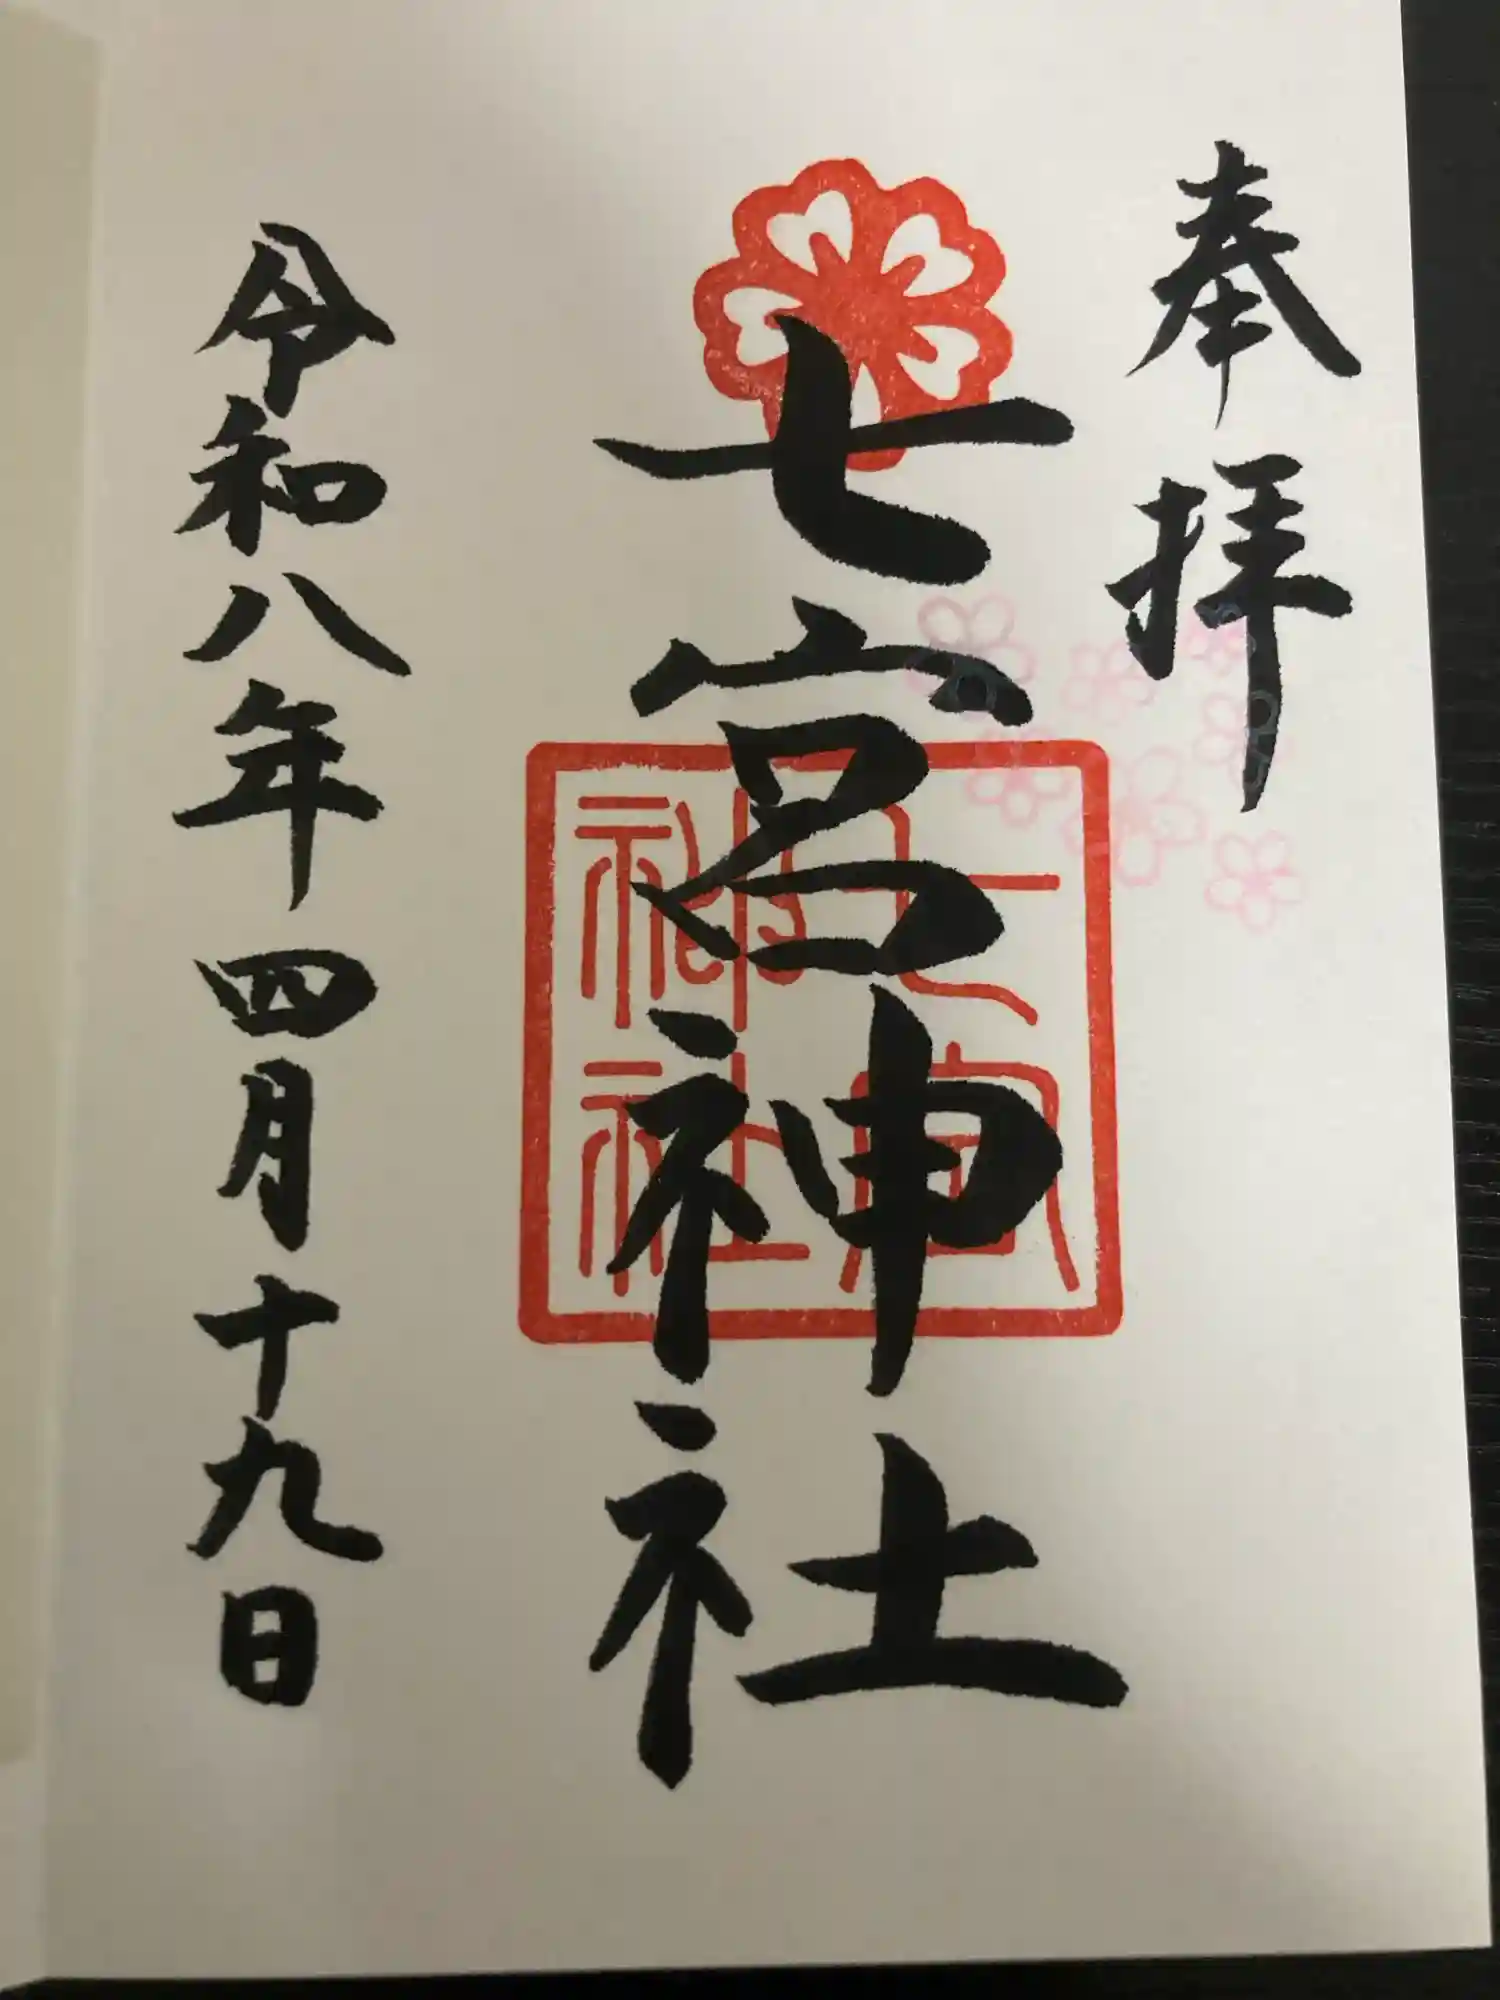 奉拝
七宮神社
七宮
神社
令和八年四月十九日